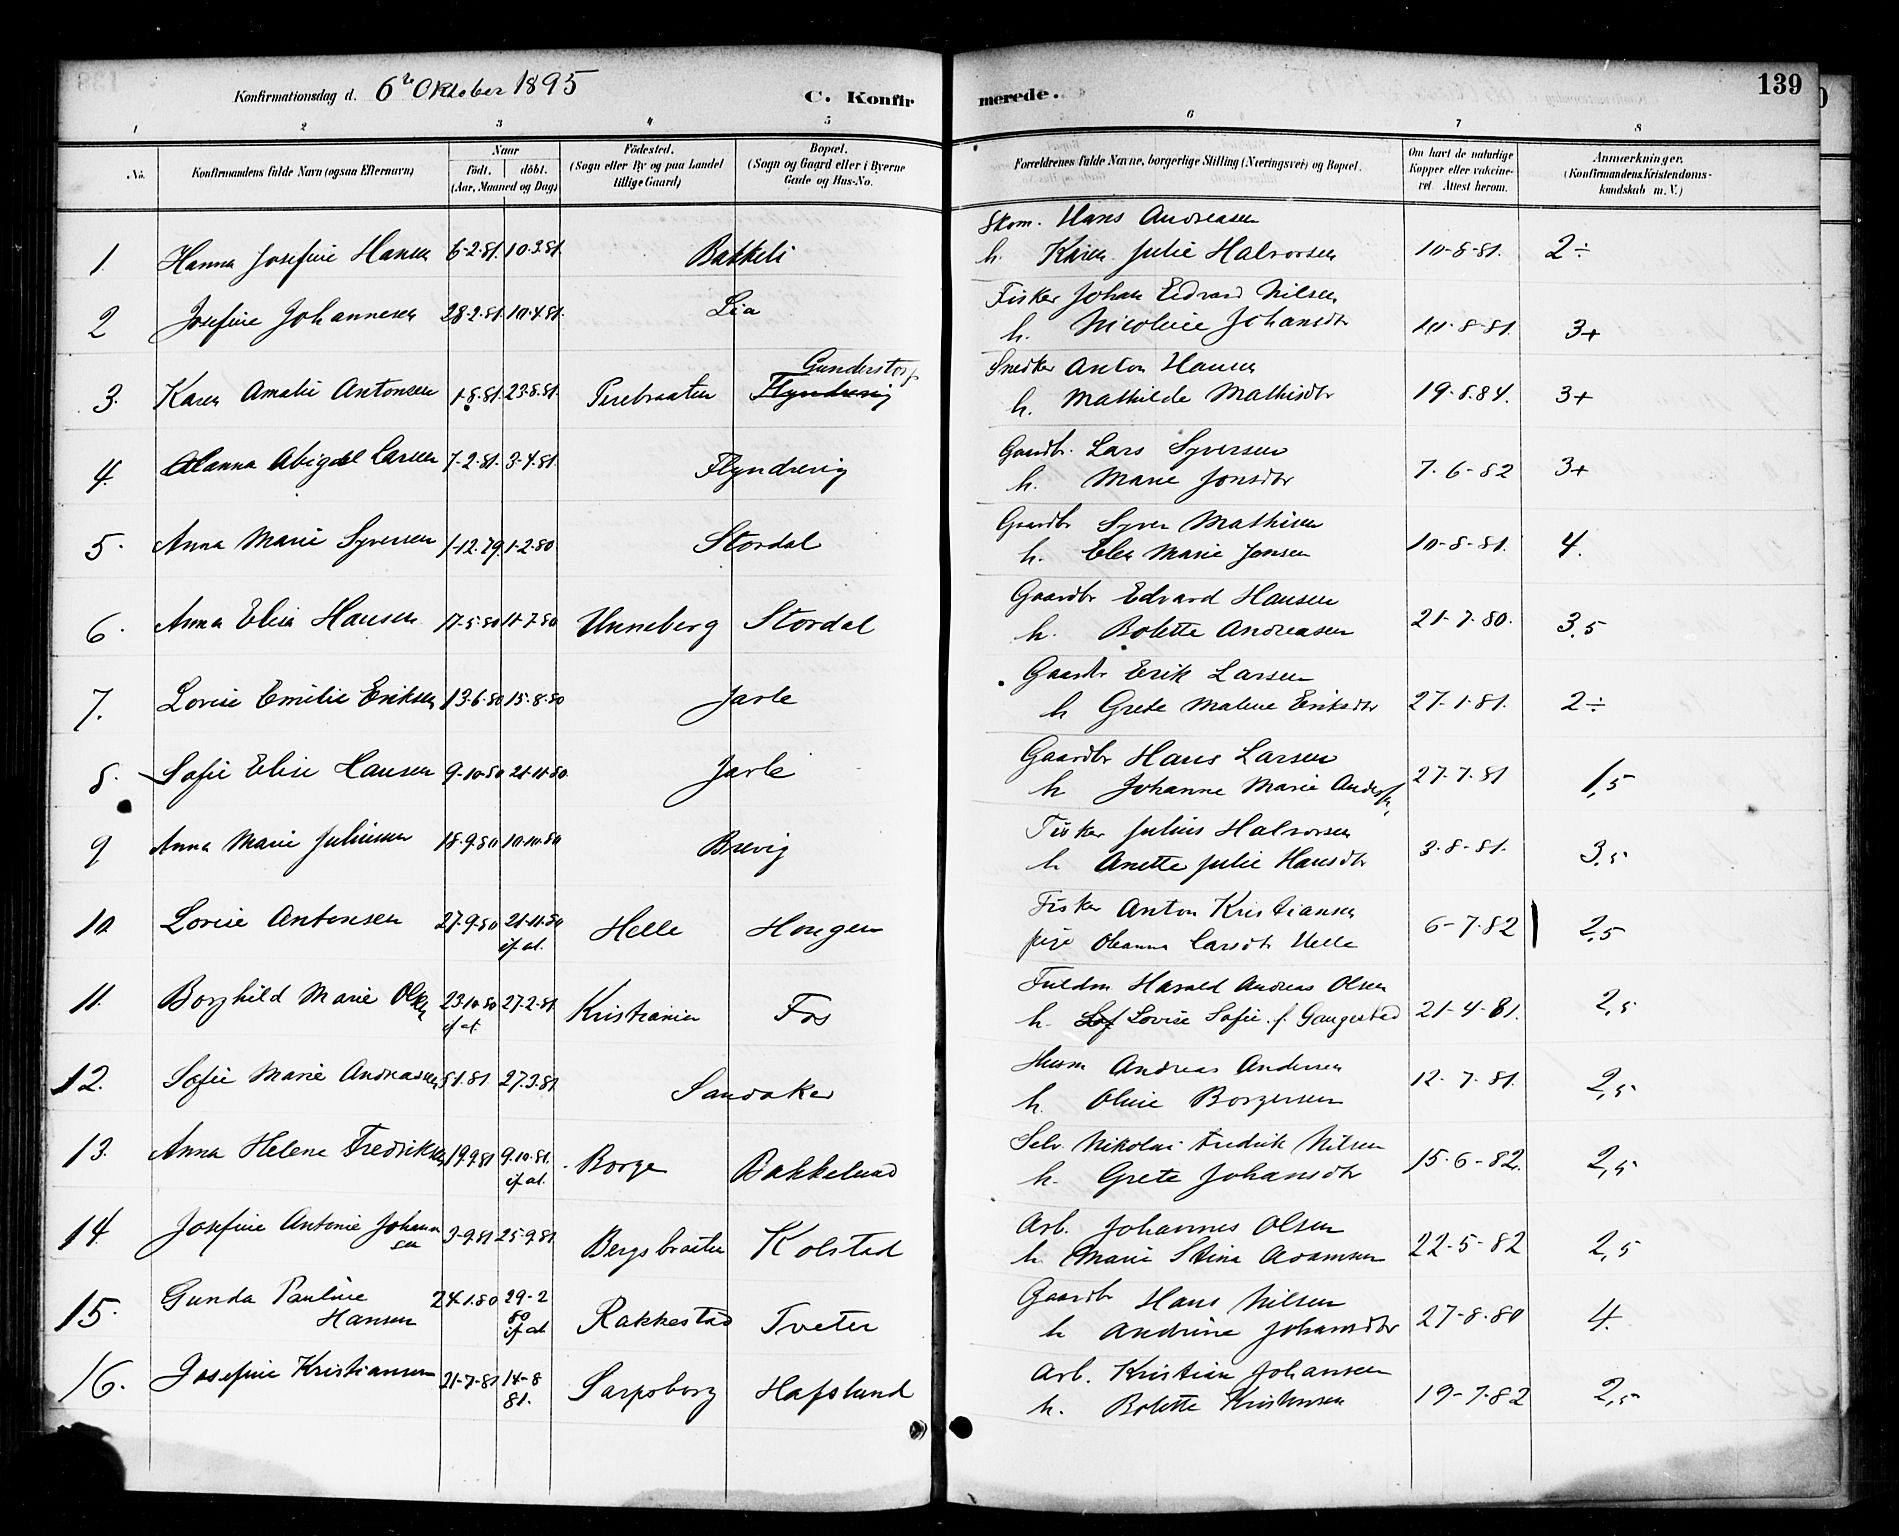 Konfirmationsdag d. 6te Oktober 1895 C. Konfirmerede. 139
1 2 3 4 5 6 7 8
No. Konfirmandens fulde Navn (ogsaa Efternavn) Naar Født. døbt. (Aar, Maaned og Dag) Fødested. (Sogn eller By og paa Landet tillige Gaard) Bopæl. (Sogn og Gaard eller i Byerne Gade og Hus-No. Forældrenes fulde Navne, borgerlige Stilling (Næringsvei) og Bopæl. Om havt de naturlige Kopper eller vakcineret. Attest herom. Anmærkninger. (Konfirmandens Kristendomskundskab m. V.)
Skom. Hans Andreasen
1. Hanna Josefine Hansen 6-2-81. 10-3-81. Bakkeli h. Karen Julie Halvorsen 10-8-81. 2÷
Fisker Johan Edvard Nilsen
2 Josefine Johannesen 28-2-81. 10-4-81. Lia h. Nicoline Johansdtr 10-8-81. 3+
Gunderstorp Snedker Anton Hansen
3. Karen Amalie Antonsen 1-8-81. 23-8-81. Perebraaten Flyndrevig h. Mathilde Mathisdtr 19-8-84. 3+
Gaardbr. Lars Syversen
4. Hanna Abigael Larsen 7-2-81. 3-4-81. Flyndrevig h. Marie Jonsdtr 7-6-82 3+
Gaardbr Syver Mathisen
5. Anna Marie Syversen 1-12-79. 1-2-80. Stordal h. Elen Marie Jensen 10-8-81. 4.
Gaardbr Edvard Hansen
6. Anna Elisa Hansen 17-5-80 11-7-80 Unneberg Stordal h. Bolette Andreasen 21-7-80. 3,5
Gaardbr Erik Larsen
7. Lovise Emilie Eriksen 13-6-80 15-8-80 Jarle h Grete Malene Eriksdtr 27-1-81. 2÷
Gaardbr Hans Larsen
8. Sofie Elise Hansen 9-10-80 21-11-80. Jarle h Johanne Marie Andersen 27-7-81 1,5
Fisker Julius Halvorsen
9 Anna Marie Juliussen 18-9-80 10-10-80 Brevig h Anette Julie Hansdtr 3-8-81. 3,5
Fisker Anton Kristiansen
10. Lovise Antonsen 27-9-80 21-11-80 if. at. Helle Hougen pige Oleanna Larsdtr Helle 6-7-82 2,5
Fuldm Harald Andreas Olsen
11. Borghild Marie Olsen 23-10-80 if. at 27-2-81. Kristiania Fos h. Sof Lovise Sofie f. Gaugestad 21-4-81. 2,5
Husm Andreas Andersen
12. Sofie Marie Andreassen 5-1-81. 27-3-81. Sandaker h. Oline Borgersen 12-7-81. 2,5
Selv. Nikolai Fredrik Nilsen
13. Anna Helene Fredriksen 19-9-81 9-10-81. if at. Borge Bakkelund h. Grete Johansdtr 15-6-82. 2,5
Arb. Johannes Olsen
14. Josefine Antonie Johansen 3-9-81 25-9-81. Bergsbraaten Kolstad h. Marie Stina Adamsen 22-5-82 2,5
Gaardbr Hans Nilsen
15. Gunda Pauline Hansen 24-1-80 29-2 80 if at Rakkestad Tveter h Andrine Johansdtr 27-8-80 4.
Arb. Kristian Johansen
16. Josefine Kristiansen 21-7-81 14-8 81. Sarpsborg Hafslund h. Bolette Kristensen 19-7-82 2,5